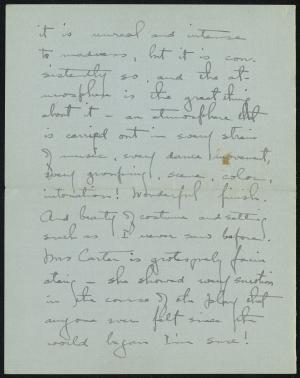 it is unreal and intense
to madness, but it is con-
sistently so, and the at-
mosphere is the great thing
about it – an atmosphere that
is carried out in every strain
of music, every dance movement,
every grouping, scene, color,
intonation! Wonderful finish.
And beauty of costume and setting
such as I never saw before.
Mrs Carter is grotesquely fascin
ating – she showed every emotion
in the course of the play that
anyone ever felt since the
world began I'm sure!